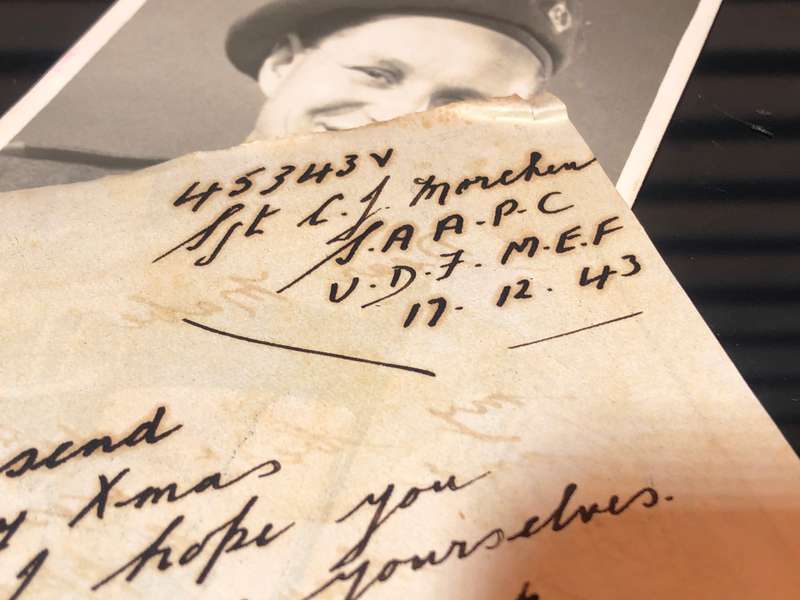 45343 V
Sgt C. J. Morchen
S.A.A.P.C
U.D.F. M.E.F
17. 12. 43
send
Xmas
I hope you
yourselves.